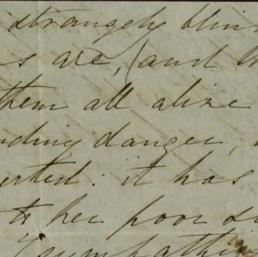 strangely blin
s are, (and th
them all alive
ding danger,
erted: it has
to her poor si
sympathies